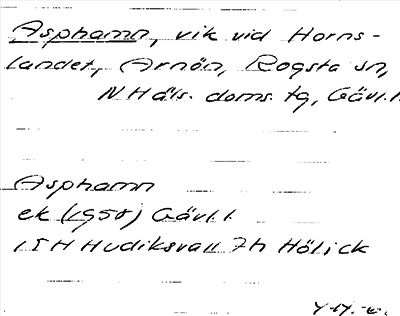 Asphamn, vik vid Horns-
landet, Arnön, Rogsta sn,
N Häls. doms. tg, Gävl.l.
Asphamn
ek (1958) Gävl.l.
15H Hudiksvall 7h Hölick